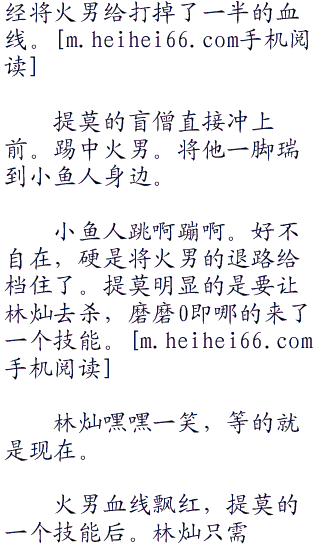 经将火男给打掉了一半的血
线。[m.heihei66.com手机阅
读]
提莫的盲僧直接冲上
前。踢中火男。将他一脚瑞
到小鱼人身边。
小鱼人跳啊蹦啊。好不
自在，硬是将火男的退路给
档住了。提莫明显的是要让
林灿去杀，磨磨0即哪的来了
一个技能。[m.heihei66.com
手机阅读]
林灿嘿嘿一笑，等的就
是现在。
火男血线飘红，提莫的
一个技能后。林灿只需